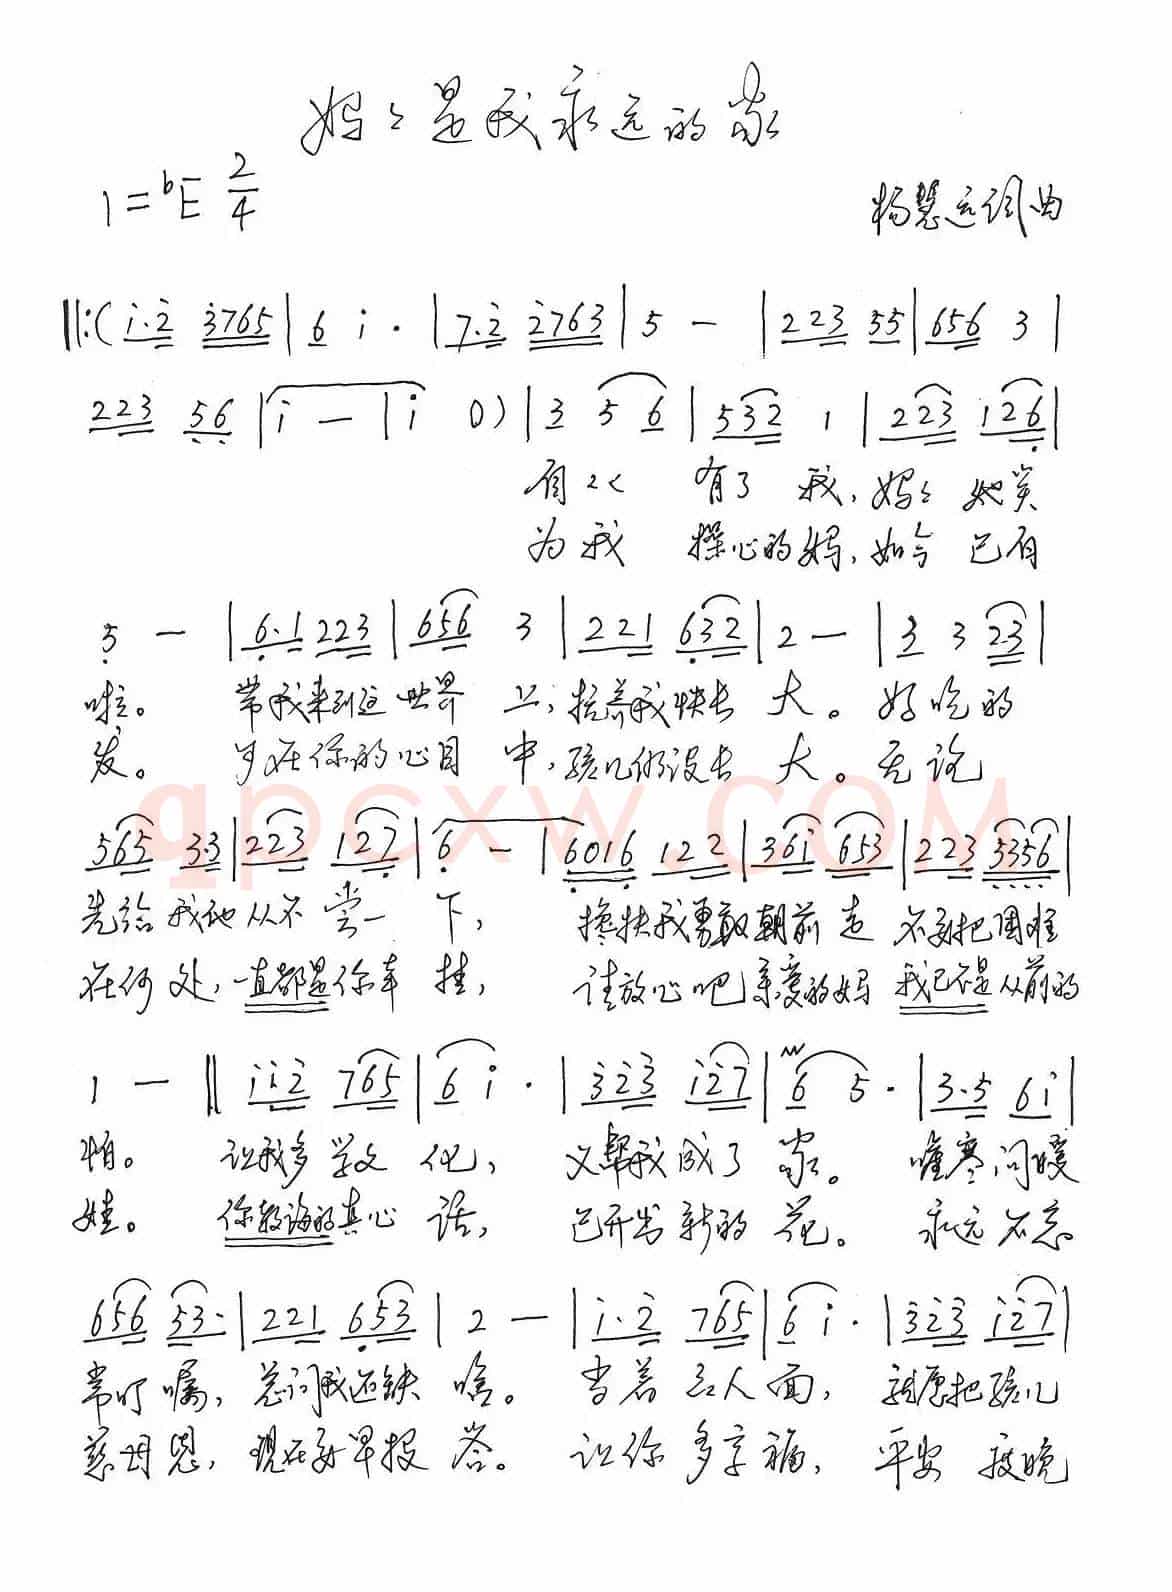 妈々是我永远的家
1=♭E 2/4
杨慧远词曲
‖:( i·2 3765 | 6 i · | 7·2 2763 | 5 - | 223 55 | 656 3 |
223 56 | i - | i 0) | 3 5 6 | 532 1 | 223 126 |
自从 有了 我, 妈々 她笑
为我 操心的妈, 如今 已有
5 - | 6·1 223 | 656 3 | 221 632 | 2 - | 3 3 23 |
啦。 带我来到这世界 上, 抚养我快长 大。 好吃的
发。 可在你的心目 中, 孩儿仍没长 大。 无论
qpcxw.COM
565 3·3 | 223 127 | 6 - | 6016 122 | 36i 653 | 223 5356 |
先给 我她从不 尝一 下, 搀扶我勇敢朝前 走 不要把困难
在何 处, 一直都是你牵 挂, 请放心吧亲爱的妈 我已不是从前的
1 - ‖ ii2 765 | 6 i · | 323 i27 | 6 5 · | 3·5 6i |
怕。 让我多 学文 化, 又帮我成了 家。 嘘寒问暖
娃。 你教诲的真心 话, 已开出新的 花。 永远不忘
656 53· | 221 653 | 2 - | i·2 765 | 6 i · | 323 i27 |
常叮嘱, 总问我还缺 啥。 当着 众人面, 就愿把孩儿
慈母恩, 现在要早报 答。 让你 多享福, 平安 度晚